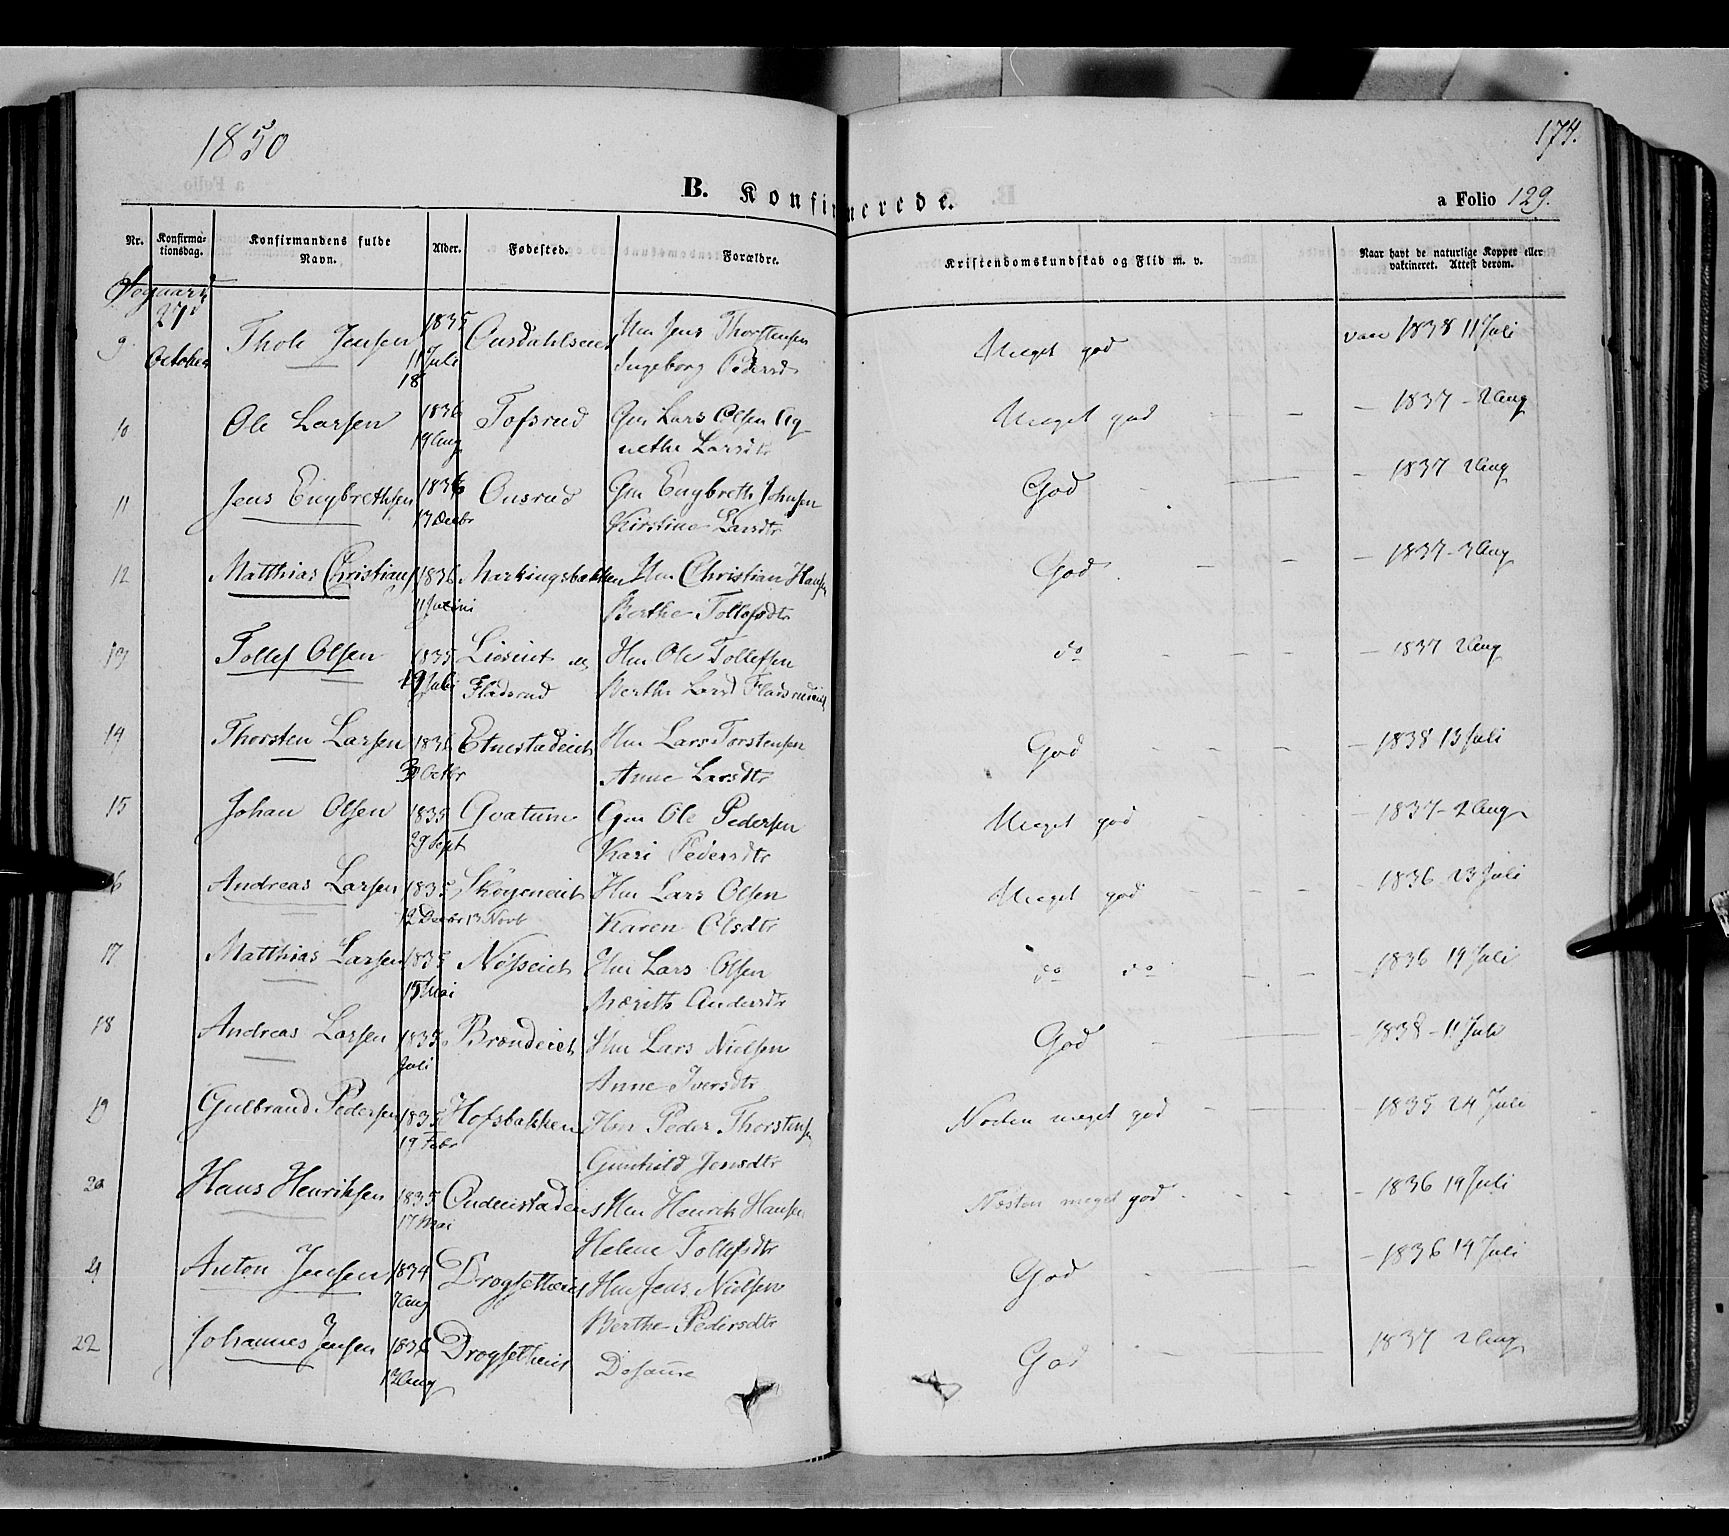 1850
174.
B. Konfirmerede.
a Folio 129.
Nr. Konfirmationsdag. Konfirmandens fulde Navn. Alder. Fødested. Forældre. Kristendomskundskab og Flid m. v. Naar havt de naturlige Kopper eller vaktineret. Attest derom.
27d October
9 Thole Jensen 1835 11 Juli Hm Jens Thorstensen Meget god vac 1838 11 Juli
Ingeborg Pedersd
10 Ole Larsen 1836 19 Aug Tofsrud Gm Lars Olsen Ag- Meget god — 1837 - 2 Aug
nethe Larsdtr
11 Jens Engbrethsen 1836 17 Decbr Onsrud Gm Engbreth Johnsen God — 1837 2 Aug
Kirstine Larsdtr
12 Matthias Christians 1836 11 Juni Hm Christian Hansen God — 1837 - 3 Aug
Berthe Tollefsdtr
13 Tollef Olsen 1835 19 Juli Lieseiet Hm Ole Tollefsen do — 1837 2 Aug
Fladsrud Berthe Larsd Fladsrudeiet
14 Thorsten Larsen 1836 Octbr Etnestadeiet Hm Lars Torstensen God — 1838 13 Juli
Anne Larsdtr
15 Johan Olsen 1835 29 Sept Qvatum Gm Ole Pedersen Meget god — 1837 - 2 Aug
Kari Pedersdtr
16 Andreas Larsen 1835 Skøyeneiet Hm Lars Olsen Meget god — 1836 23 Juli
12 Decbr 13 Novb Karen Olsdtr
17 Matthias Larsen 1835 15 Mai Nøsseiet Hm Lars Olsen do do — 1836 19 Juli
Mærith Andersdtr
18 Andreas Larsen 1835 Juli Brændeiet Hm Lars Nielsen God — 1838 - 11 Juli
Anne Iversdtr
19 Gulbrand Pedersen 1835 19 Febr Hofsbakken Hm Peder Thorstensen Næsten meget god — 1835 24 Juli
Gunhild Jensdtr
20 Hans Henriksen 1835 17 Mai Hm Henrik Hansen Næsten meget god — 1836 19 Juli
Helene Tollefsdtr
21 Anton Jensen 1834 7 Aug Drogsetheiet Hm Jens Nielsen God — 1836 19 Juli
Berthe Pedersdtr
22 Johannes Jensen 1836 13 Aug Drogsetheiet Dosame God — 1837 2 Aug